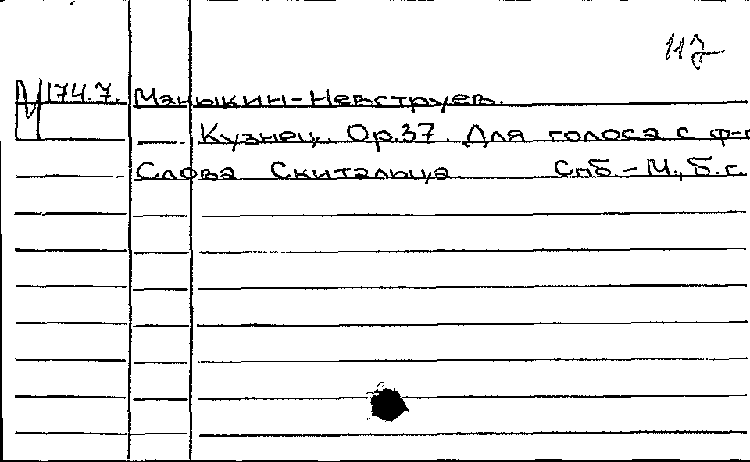 117
М 174.7. Маныкин-Невструев.
— Кузнец. Ор.37. Для голоса с ф-п
Слова Скитальца Спб.-М., б.г.